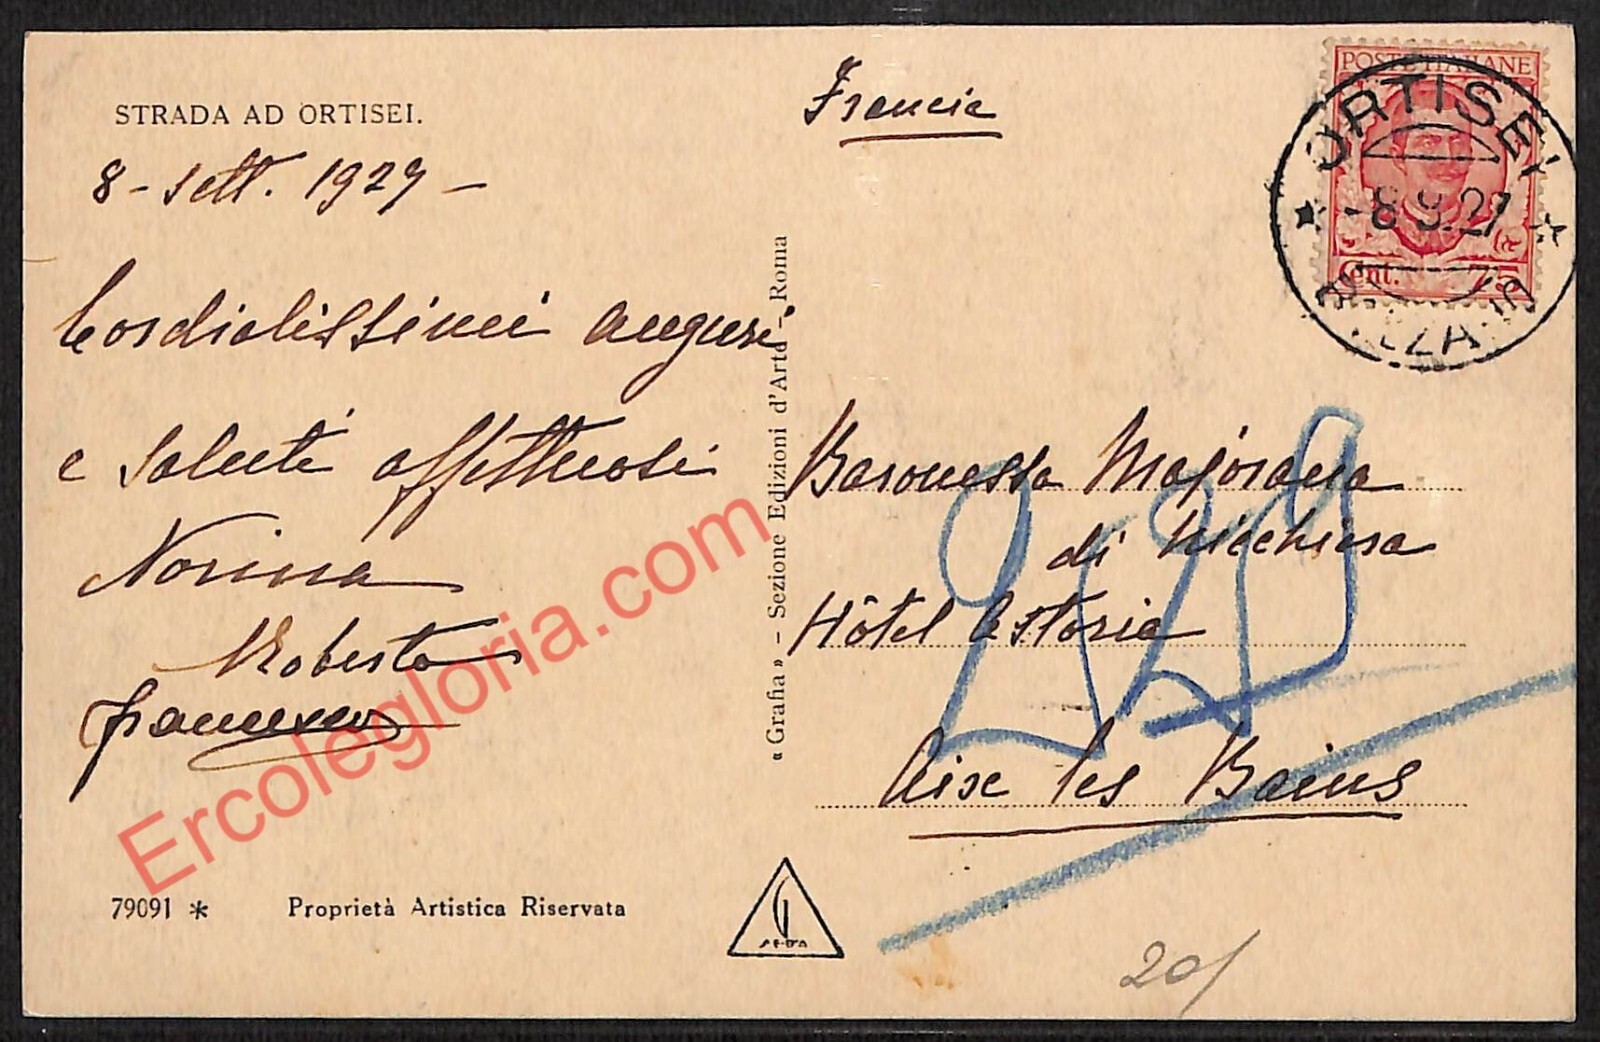 STRADA AD ORTISEI.
8 - Sett. 1927 -
Cordialissimi auguri
e saluti affettuosi
Norina
Roberto
Francesco
79091 *
Proprietà Artistica Riservata
« Grafia » - Sezione Edizioni d'Arte - Roma
Francia
POSTE ITALIANE
Cent. 75
ORTISEI
-8.9.27
Baronessa Majorana
di Nicchiara
Hôtel Astoria
Aix les Bains
20/
Ercolegloria.com